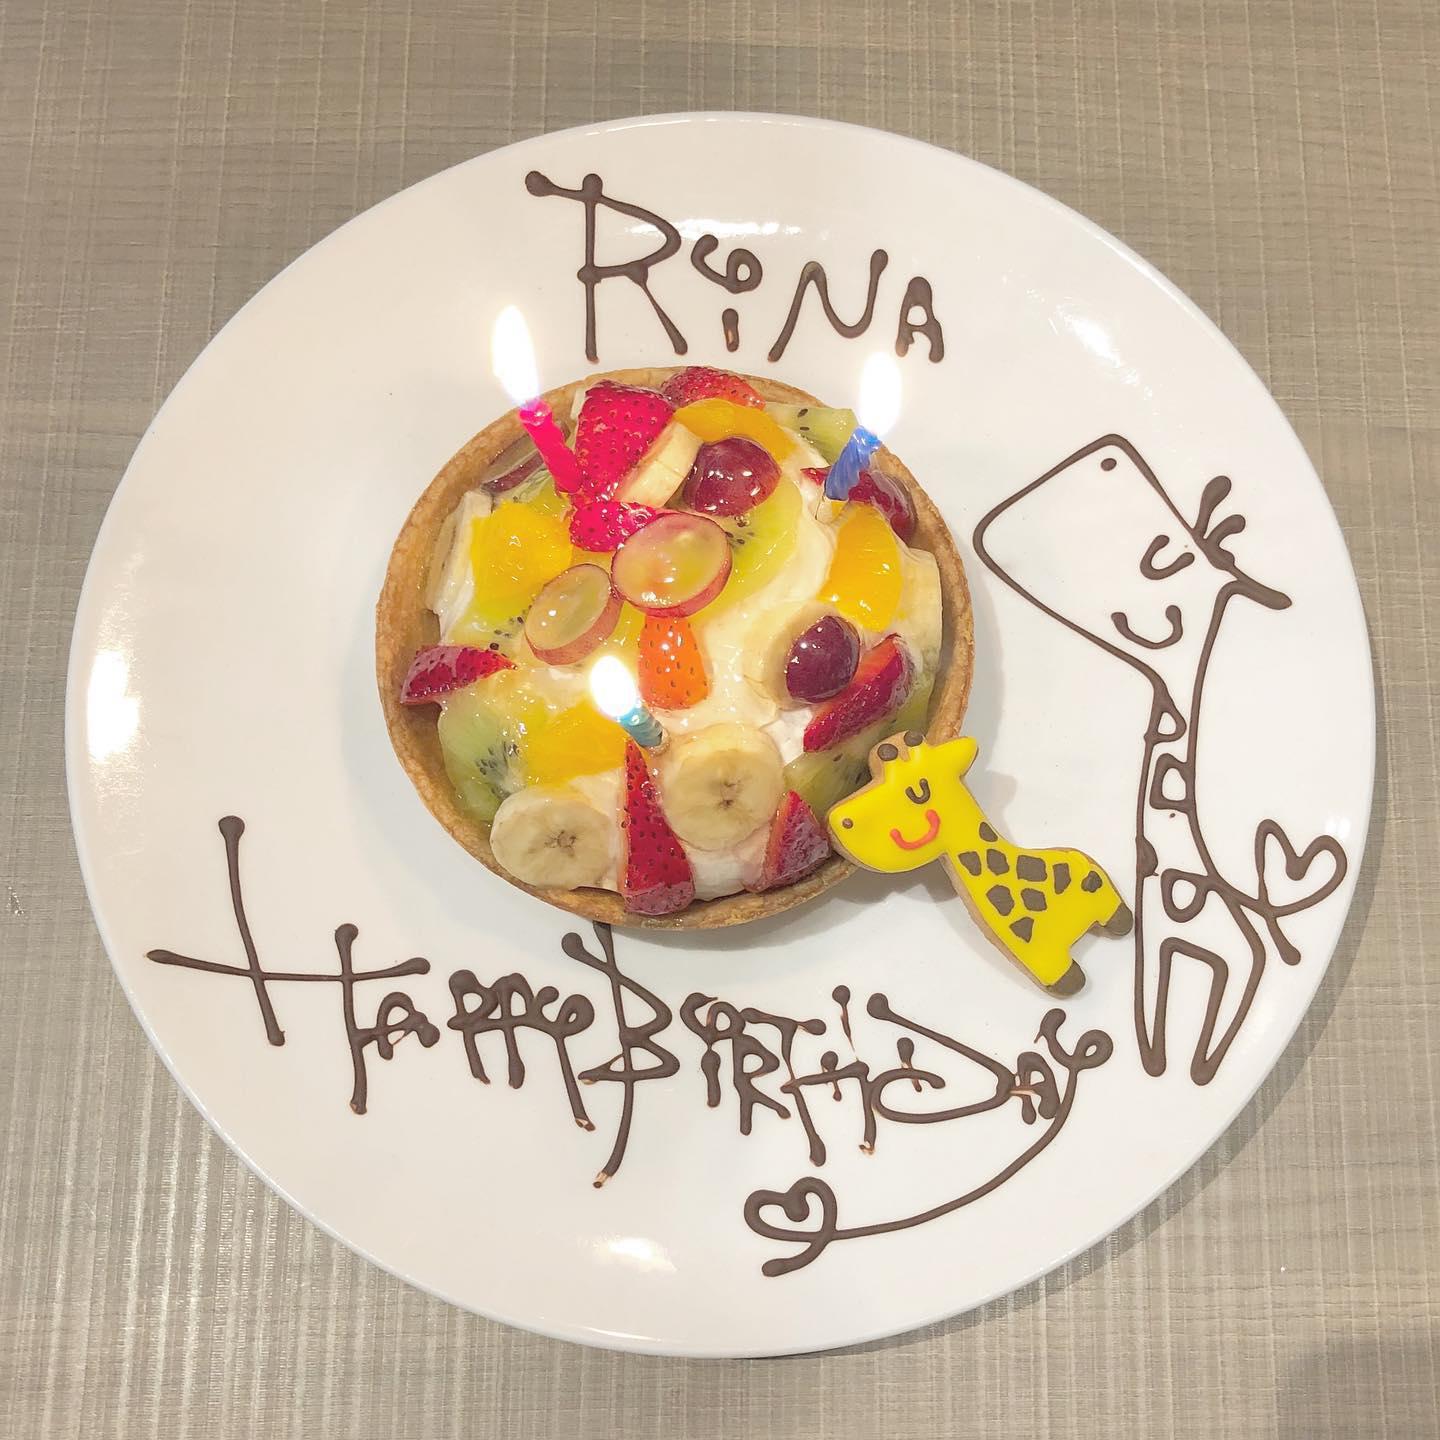 RiNA
HAPPY BiRTHDAY